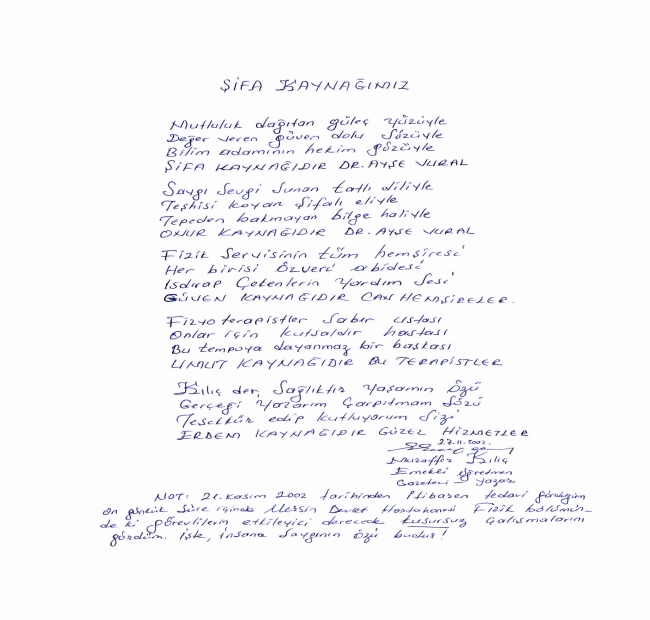 ŞİFA KAYNAĞIMIZ
Mutluluk dağıtan güleç yüzüyle
Değer veren güven dolu sözüyle
Bilim adamının hekim gözüyle
ŞİFA KAYNAĞIDIR DR. AYŞE VURAL
Saygı Sevgi Sunan tatlı diliyle
Teşhisi koyan Şifalı eliyle
Tepeden bakmayan bilge haliyle
ONUR KAYNAĞIDIR DR. AYŞE VURAL
Fizik Servisinin tüm hemşiresi
Her birisi Özveri abidesi
Isdırap Çekenlerin Yardım Sesi
GÜVEN KAYNAĞIDIR CAN HEMŞİRELER.
Fizyoterapistler Sabır ustası
Onlar için kutsaldır hastası
Bu tempoya dayanmaz bir başkası
UMUT KAYNAĞIDIR BU TERAPİSTLER
Kılıç der, Sağlıktır Yaşamın Özü
Gerçeği Yazarım Çarpıtmam Sözü
Teşekkür edip kutluyorum Sizi
ERDEM KAYNAĞIDIR GÜZEL HİZMETLER
27.11.2002.
Muzaffer Kılıç
Emekli öğretmen
Gazeteci yazar
NOT: Kasım 2002 tarihinden itibaren tedavi gördüğüm
on günlük Süre içinde Mersin Devlet Hastahanesi Fizik bölümün-
de ki görevlilerin etkileyici derecede kusursuz Çalışmalarını
gördüm. İşte, insana Saygının Özü budur!